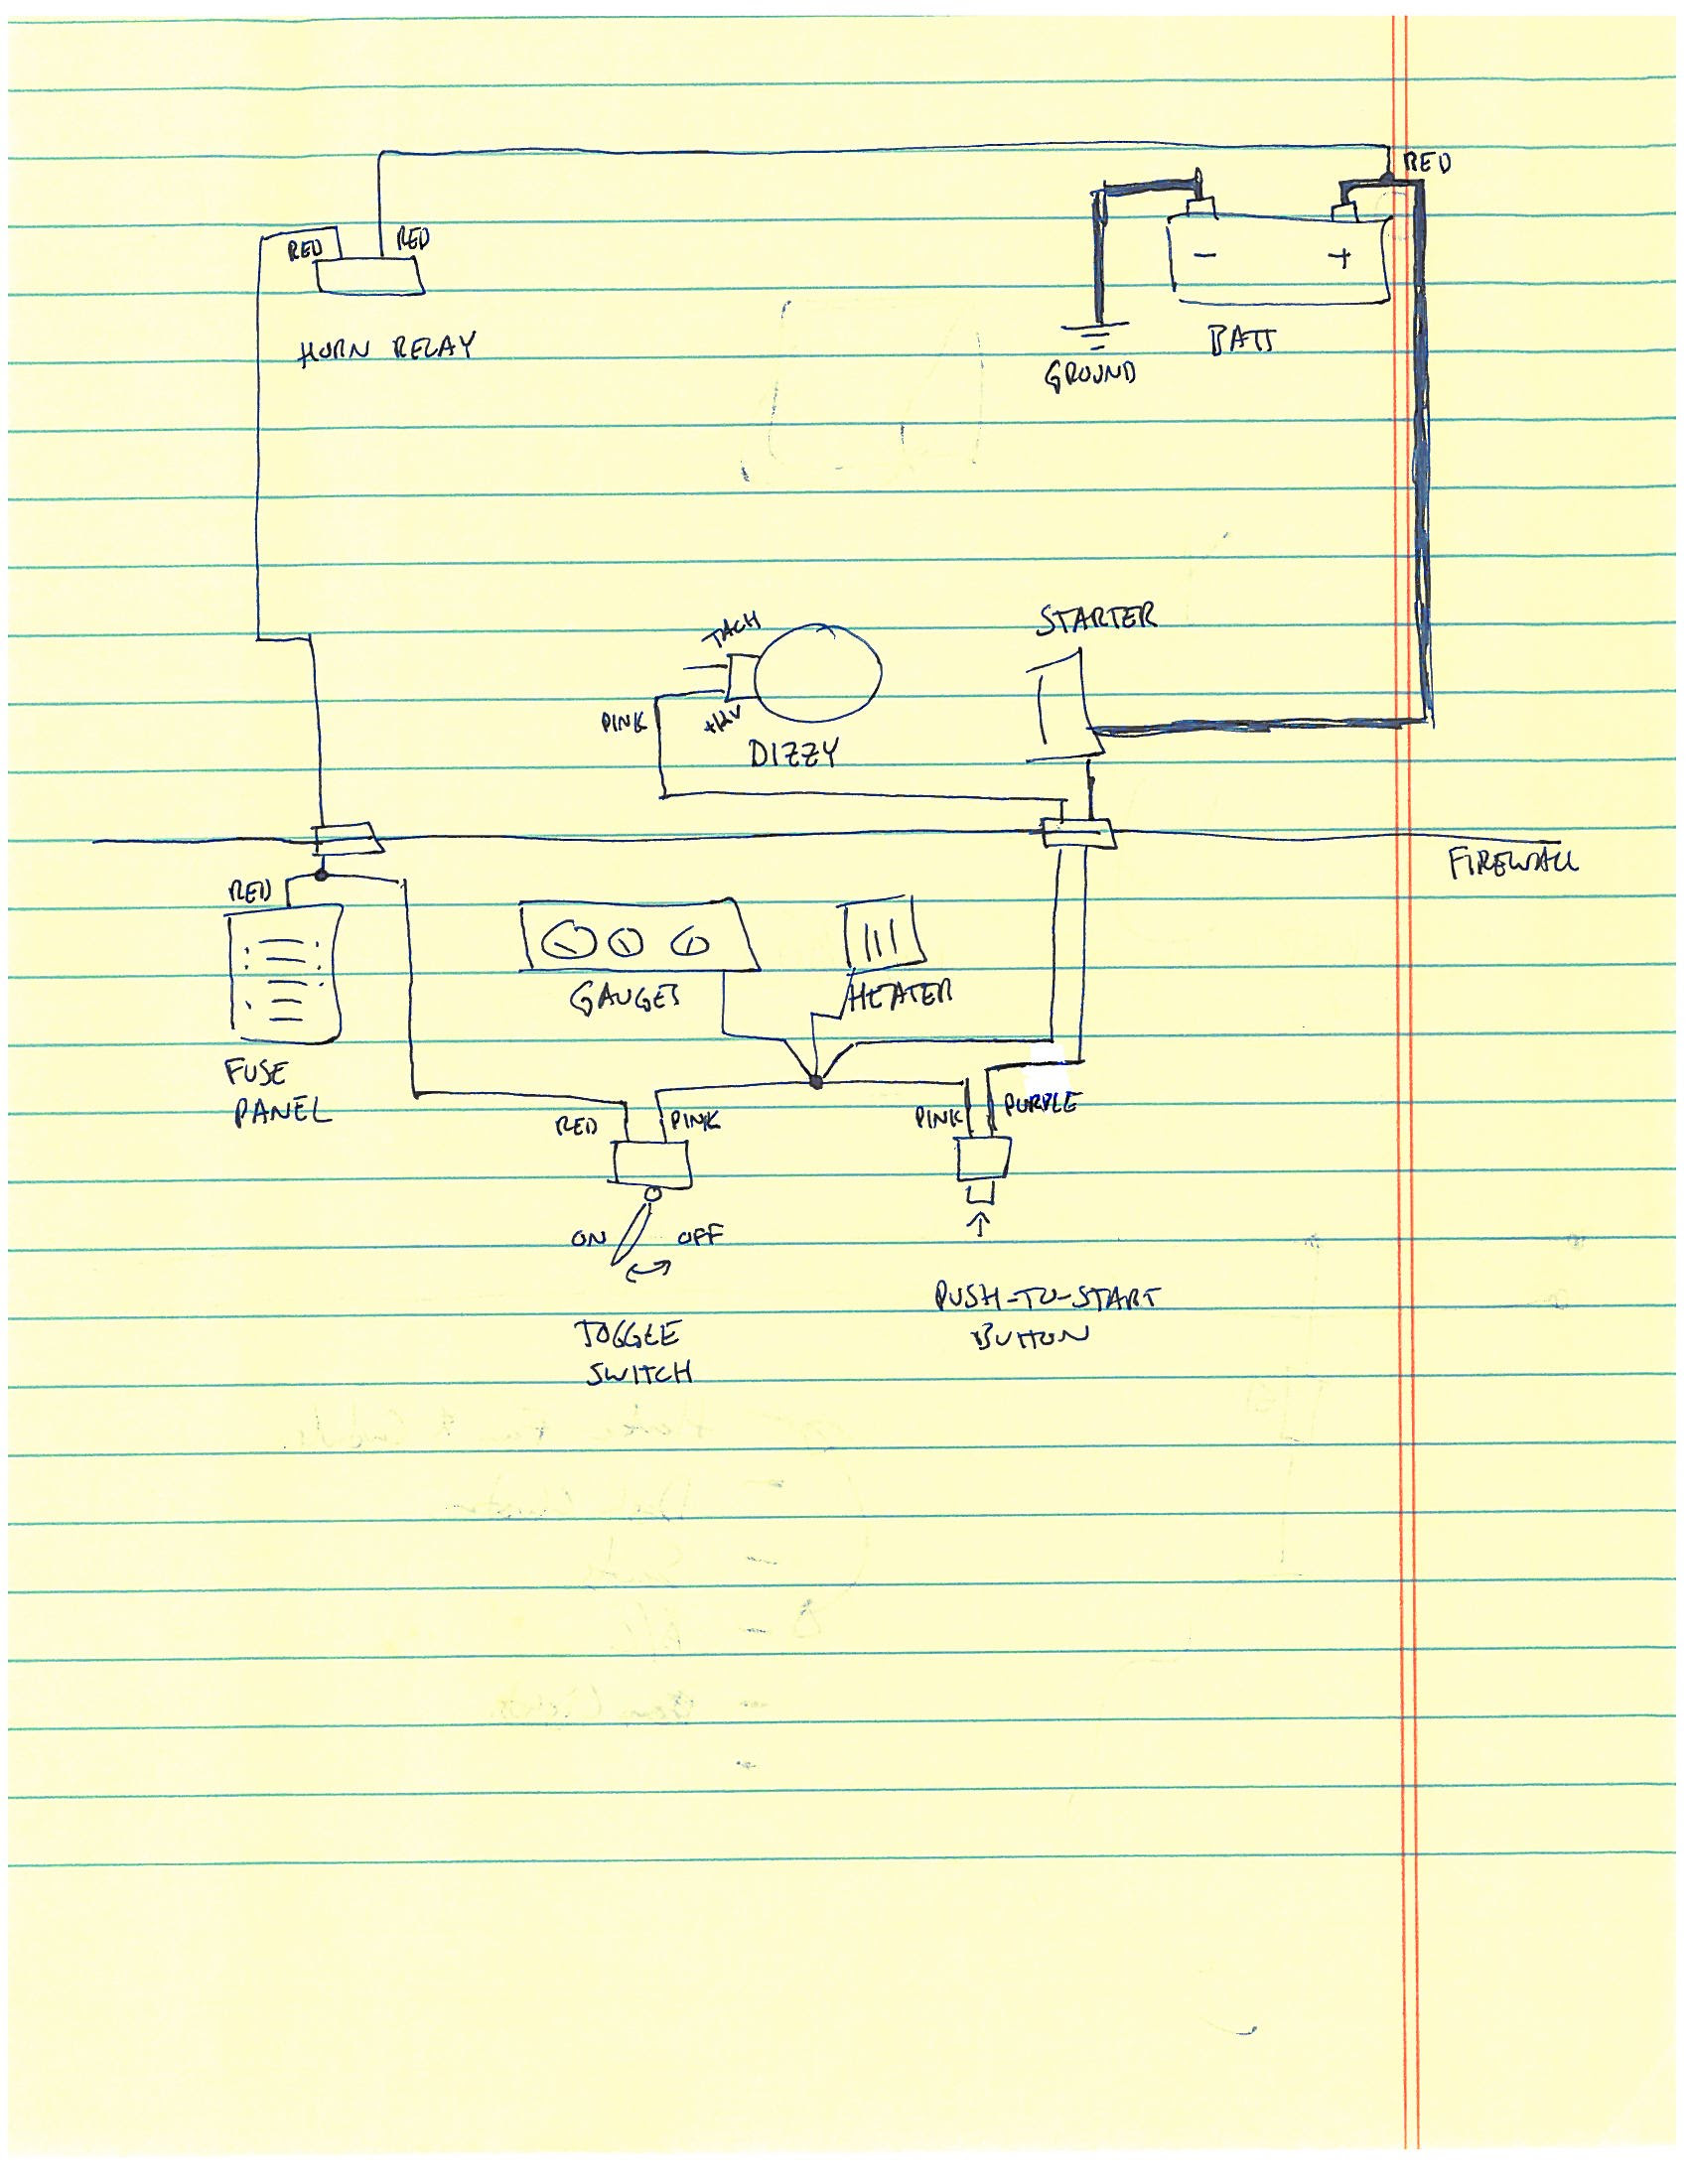 RED
RED
RED
HORN RELAY
- +
BATT
GROUND
STARTER
TACH
PINK
+12V
DIZZY
FIREWALL
RED
GAUGES
HEATER
FUSE
PANEL
RED
PINK
PINK
PURPLE
ON
OFF
PUSH-TO-START
BUTTON
TOGGLE
SWITCH